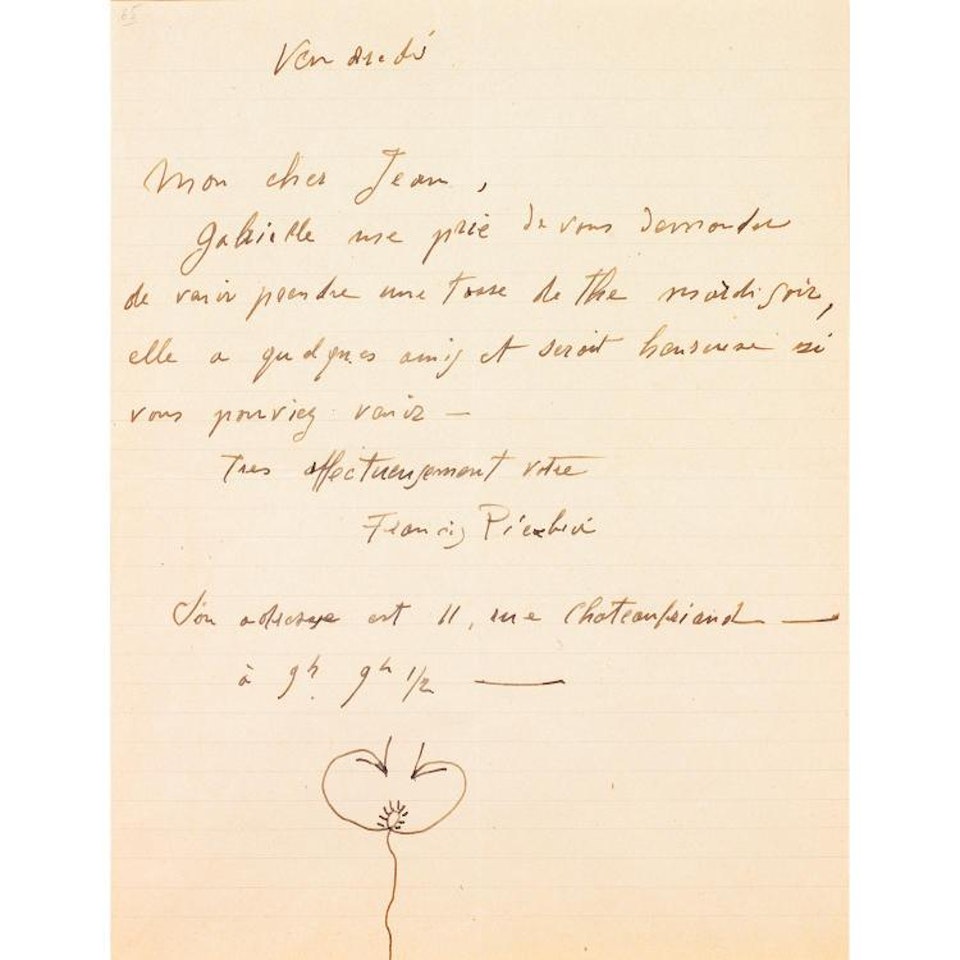 Vendredi
Mon cher Jean,
Gabrielle me prie de vous demander
de venir prendre une tasse de the mardi soir,
elle a quelques amis et serait heureuse si
vous pouviez venir —
Tres affectueusement votre
Francis Picabia
Son adresse est 11, rue Chateaubriand —
à 9h 9h 1/2 —